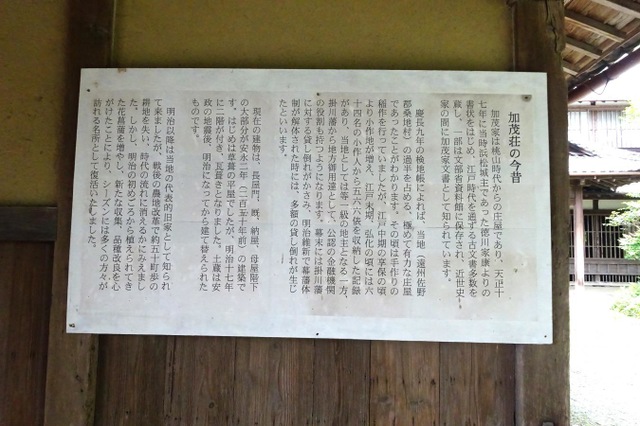 加茂荘の今昔
加茂家は桃山時代からの庄屋であり、天正十
七年に当時浜松城主であった徳川家康よりの
書状をはじめ、江戸時代を通ずる古文書多数を
蔵し、一部は文部省資料館に保存され、近世史
家の間に加茂家文書として知られています。
慶長九年の検地帳によれば、当地（遠州佐野
郡桑地村）の過半を占める、極めて有力な庄屋
であったことがわかります。その頃は手作りの
稲作を行っていましたが、江戸中期の享保の頃
より小作地が増え、江戸末期、弘化の頃には六
十四名の小作人から五六六俵を収納した記録
があり、当地としては等一級の地主となる一方、
掛川藩から地方御用達として、公認の金融機関
の役割も持つようになります。幕末には掛川藩
に対する貸し倒れがかさみ、明治維新で幕藩体
制が解体された時には、多額の貸し倒れが生じ
たといいます。
現在の建物は、長屋門、厩、納屋、母屋階下
の大部分が安永二年（二百五十年前）の建築で
す。はじめは草葺の平屋でしたが、明治十七年
に二階が付き、瓦葺きとなりました。土蔵は安
政の地震後、明治になってから建て替えられた
ものです。
明治以降は当地の代表的旧家として知られ
て来ましたが、戦後の農地改革で約五十町歩の
耕地を失い、時代の流れに消えるかにみえまし
た。しかし、明治の初めごろから植えられてき
た花菖蒲を増やし、新たな収集、品種改良を心
がけたことにより、シーズンには多くの方々が
訪れる名所として復活いたしました。